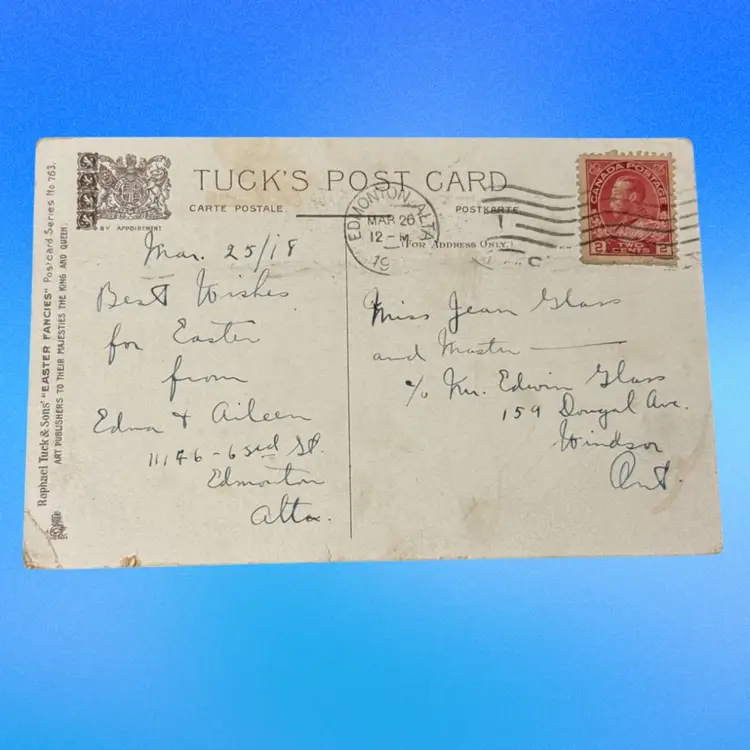 TUCK'S POST CARD
CARTE POSTALE.
POSTKARTE
(FOR ADDRESS ONLY.)
BY APPOINTMENT
Raphael Tuck & Sons' "EASTER FANCIES" Postcard Series No 763.
ART PUBLISHERS TO THEIR MAJESTIES THE KING AND QUEEN.
EDMONTON, ALTA
MAR 26
12 - M
19
CANADA POSTAGE
2 TWO 2
CENTS
Mar. 25/18
Best Wishes
for Easter
from
Edna & Aileen
11146 - 63rd St.
Edmonton
Alta.
Miss Jean Glass
and Master
c/o Mr. Edwin Glass
159 Dougal Ave.
Windsor
Ont.